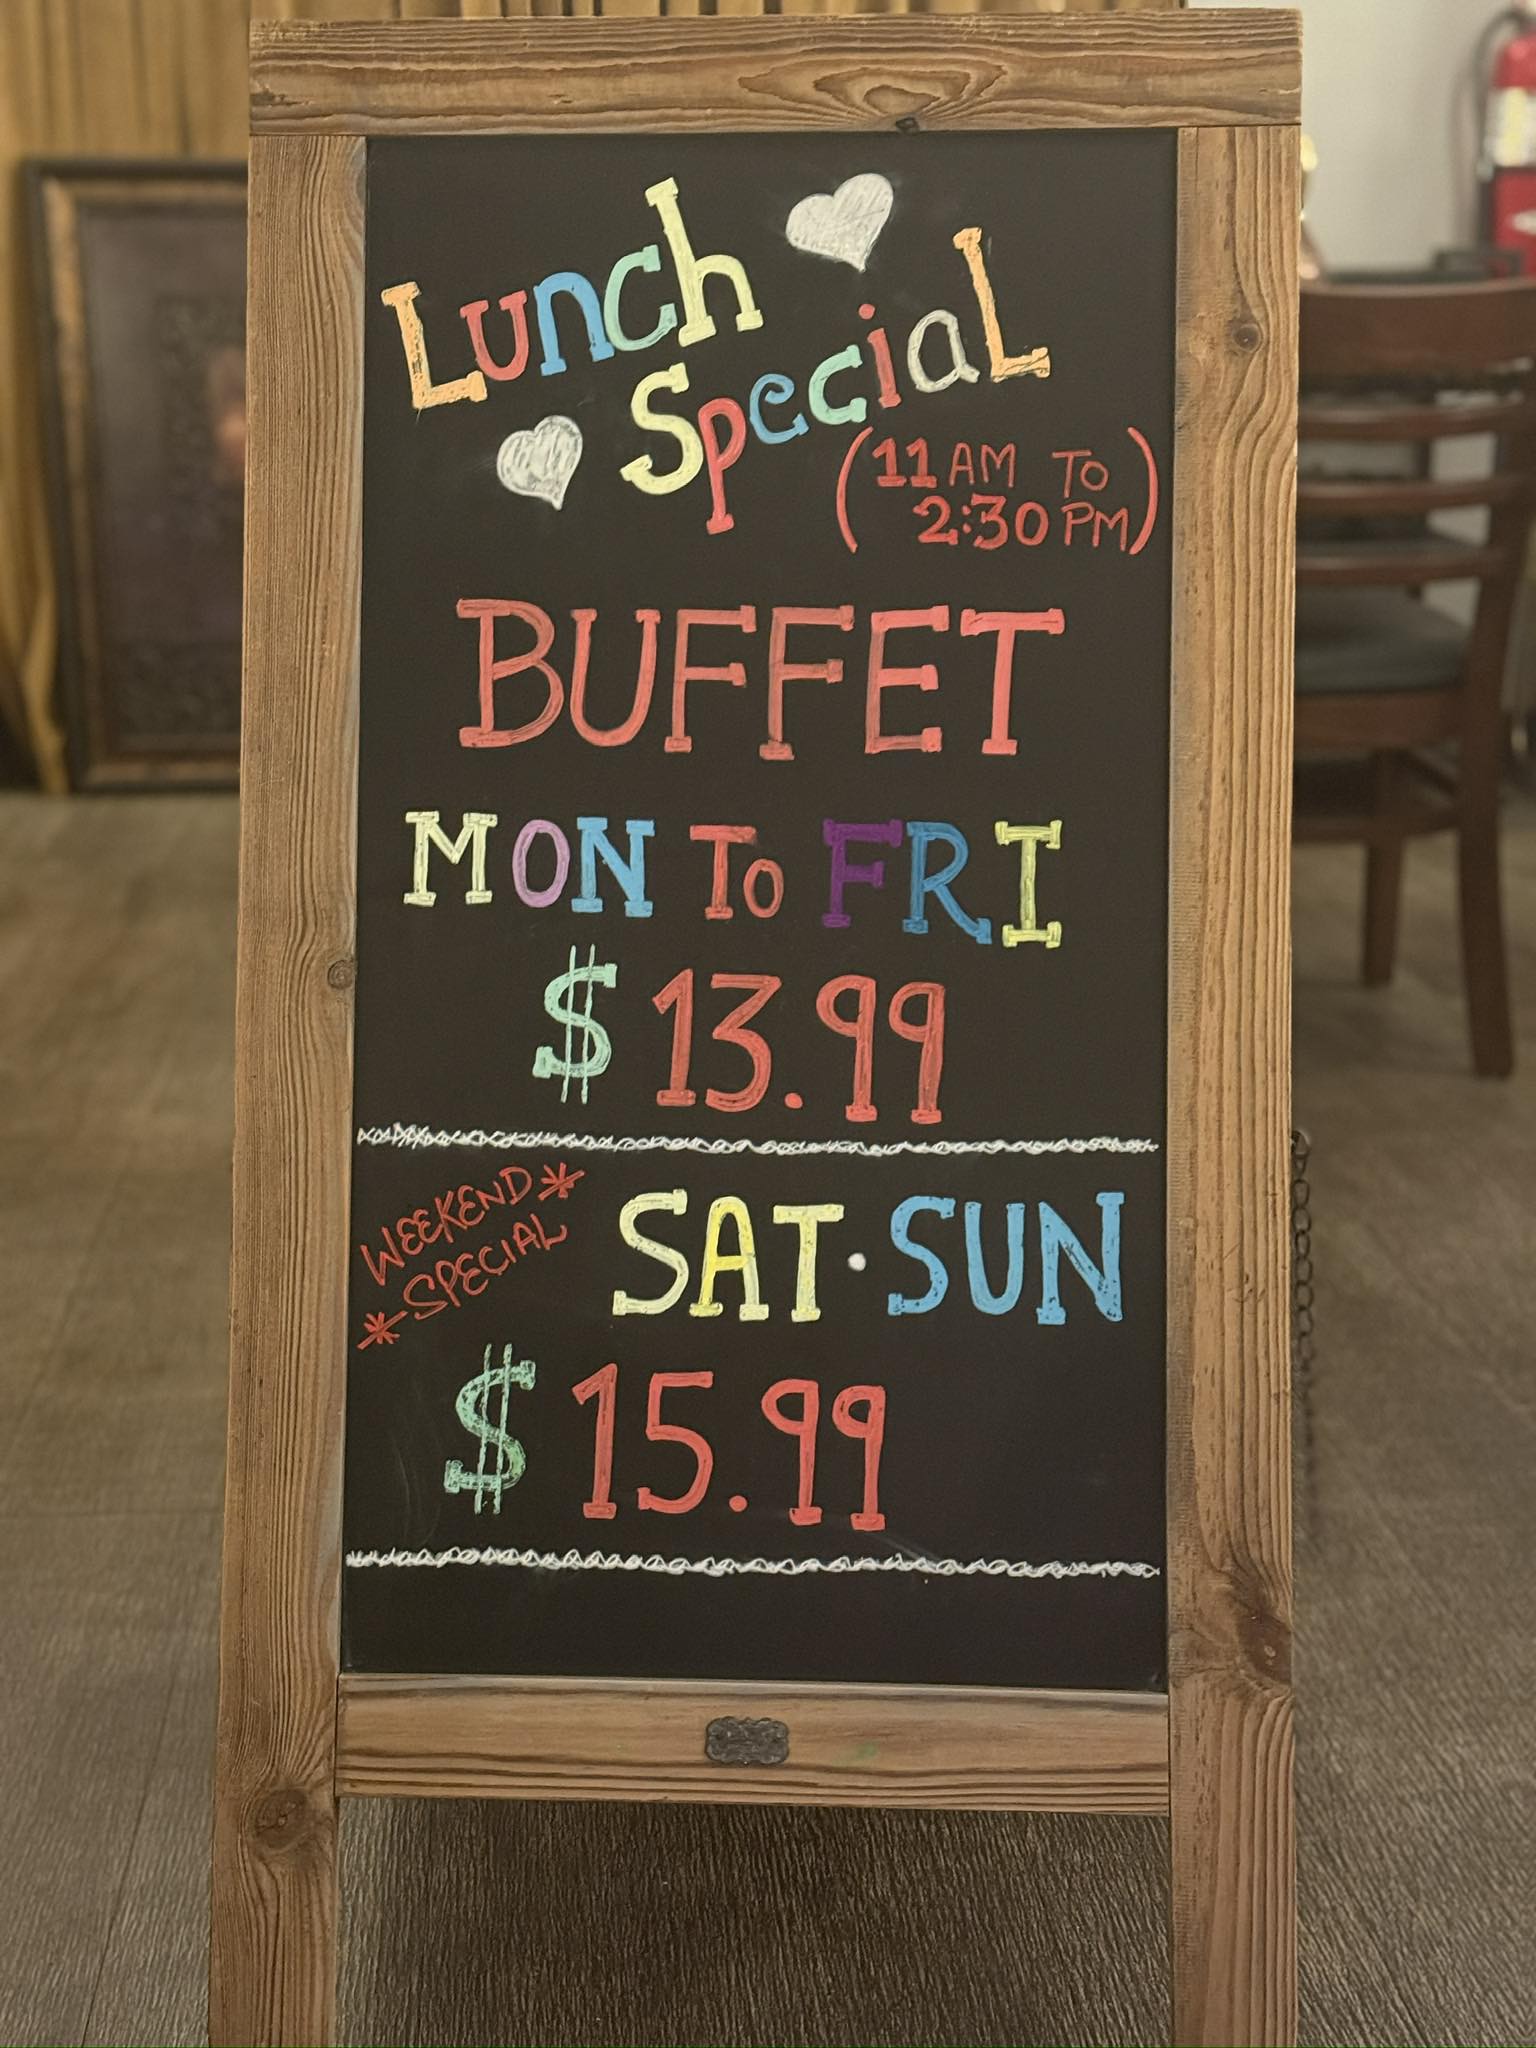 Lunch
Special
(11 AM TO
2:30 PM)
BUFFET
MON To FRI
$ 13.99
WEEKEND *
* SPECIAL
SAT · SUN
$ 15.99